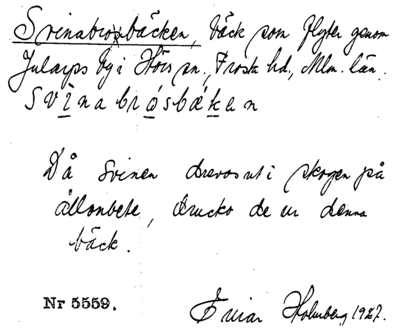 Svinabrosbäcken, bäck som flyter genom
Jularps by i Hörs sn., Frosta hd., Mlm. län.
svìnabrósbä́ken
Då svinen drevos ut i skogen på
ållonbete, drucko de ur denna
bäck.
Nr 5559. Einar Holmberg, 1927.